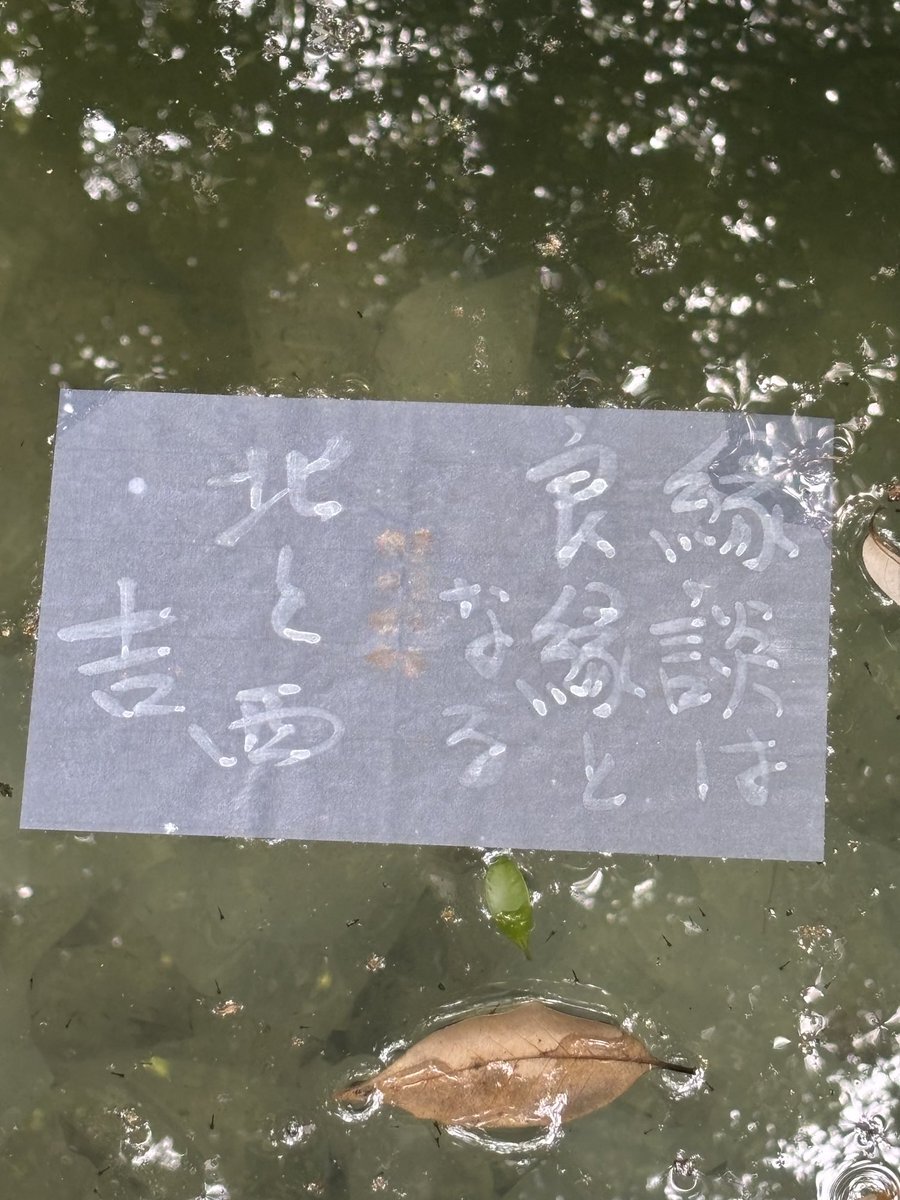 縁談は
良縁と
なる
北と西
吉